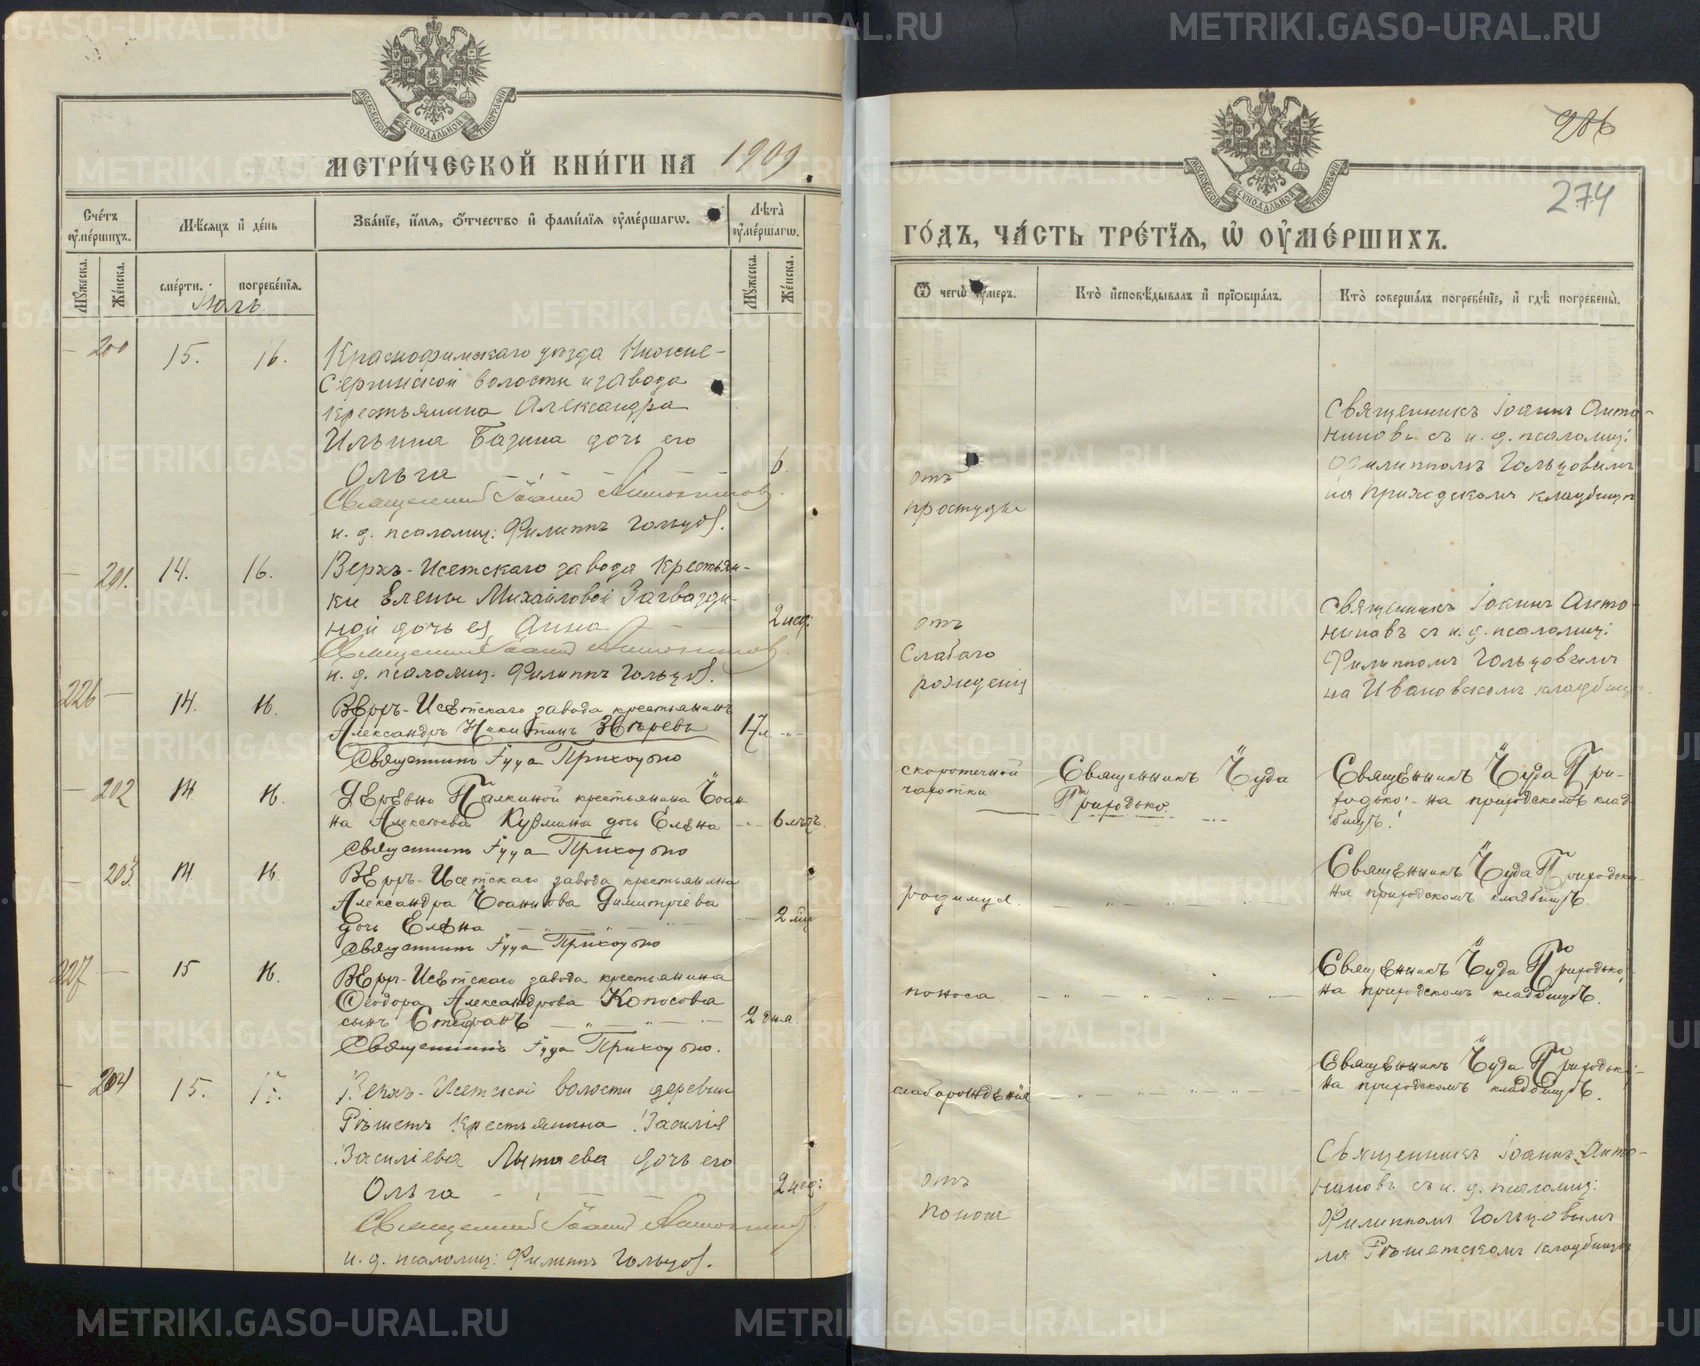 МЕТРИ́ЧЕСКОЙ КНИ́ГИ НА 1909
Сче́тъ ᲂумє́ршихъ.
Мѣ́сяцъ и҆ де́нь
Зва́нїе, и҆́мя, ѻ҆́тчество и҆ фами́лїя ᲂуме́ршагѡ.
Лѣта̀ ᲂуме́ршагѡ.
Мꙋ́жеска.
Же́нска.
сме́рти.
погребе́нїя.
Мꙋ́жеска.
Же́нска.
Іюль
200 15. 16. Красноуфимскаго уѣзда Нижне-
Сергинской волости и завода
крестьянина Александра
Ильина Базина дочь его
Ольга 6.
Священникъ Іоаннъ Антониновъ
и. д. псаломщ: Филиппъ Гольцов.
201. 14. 16. Верхъ-Исетскаго завода крестьян-
ки Елены Михайловой Загвозди-
ной дочь ея Анна 2 нед:
Священникъ Іоаннъ Антониновъ
и. д. псаломщ: Филиппъ Гольцов.
226 14. 16. Верхъ-Исѣтскаго завода крестьянинъ
Александръ Никитинъ Звѣревъ 17 л.
Священникъ Іуда Приходько
202 14 16. Деревни Палкиной крестьянина Іоан-
на Алексѣева Кузмина дочь Елена 6 лѣтъ.
Священникъ Іуда Приходько
203. 14 16. Верхъ-Исетскаго завода крестьянина
Александра Іоаннова Димитріева
дочь Елена 2 мѣс
Священникъ Іуда Приходько
227 15 16. Верхъ-Исѣтскаго завода крестьянина
Ѳеодора Александрова Копосова
сынъ Стефанъ 2 дня.
Священникъ Іуда Приходько.
204 15. 17. Верхъ-Исетской волости деревни
Рѣшетъ крестьянина Василія
Василіева Лытаева дочь его
Ольга 2 нед:
Священникъ Іоаннъ Антониновъ
и. д. псаломщ: Филиппъ Гольцов.
286
274
ГО́ДЪ, ЧА́СТЬ ТРЕ́ТЇЯ, Ѡ҆ ОУ҆МЕ́РШИХЪ.
Ѿ чегѡ̀ ᲂу҆́меръ.
Кто̀ и҆сповѣ́дывалъ и҆ прїѡбща́лъ.
Кто̀ соверша́лъ погребе́нїе, и҆ гдѣ̀ погребены̀.
отъ
простуды
Священникъ Іоаннъ Анто-
ниновъ съ и. д. псаломщ:
Филиппомъ Гольцовымъ
на приходскомъ кладбищѣ
отъ
слабаго
рожденія
Священникъ Іоаннъ Анто-
ниновъ съ и. д. псаломщ:
Филиппомъ Гольцовымъ
на Ивановскомъ кладбищѣ.
скоротечной
чахотки
Священникъ Іуда
Приходько
Священникъ Іуда При-
ходько - на приходскомъ клад-
бищѣ.
родимца.
Священникъ Іуда Приходько
на приходскомъ кладбищѣ.
поноса
Священникъ Іуда Приходько
на приходскомъ кладбищѣ.
слаборожденія
Священникъ Іуда Приходько
на приходскомъ кладбищѣ.
отъ
поноса
Священникъ Іоаннъ Анто-
ниновъ съ и. д. псаломщ:
Филиппомъ Гольцовымъ
на Рѣшетскомъ кладбищѣ
METRIKI.GASO-URAL.RU